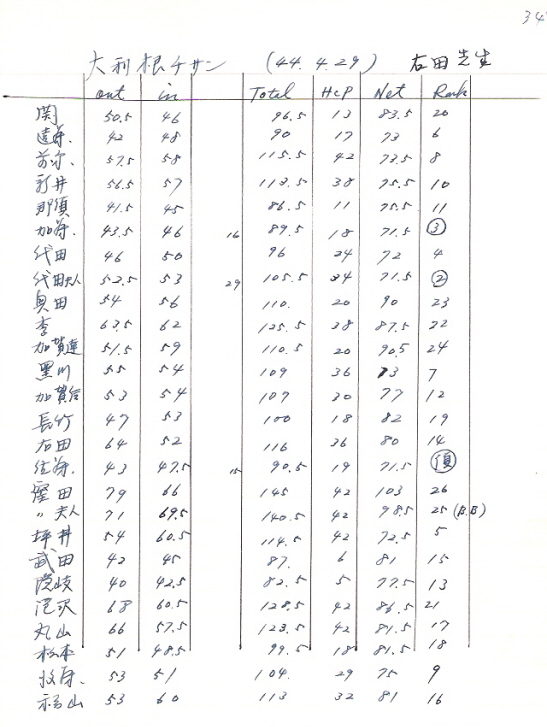 34
大利根チサン (44.4.29) 右田先生
out in Total HcP Net Rank
関 50.5 46 96.5 13 83.5 20
遠藤. 42 48 90 17 73 6
57.5 58 115.5 42 73.5 8
新井 56.5 57 113.5 38 75.5 10
那須 41.5 45 86.5 11 75.5 11
加藤. 43.5 46 16 89.5 18 71.5 ③
代田 46 50 96 24 72 4
代田夫人 52.5 53 29 105.5 34 71.5 ②
奥田 54 56 110. 20 90 23
李 63.5 62 125.5 38 87.5 22
加賀連 51.5 59 110.5 20 90.5 24
黒川 55 54 109 36 73 7
加賀 53 54 107 30 77 12
長竹 47 53 100 18 82 19
右田 64 52 116 36 80 14
佐藤. 43 47.5 15 90.5 19 71.5
窪田 79 66 145 42 103 26
〃 夫人 71 69.5 140.5 42 98.5 25 (B.B)
坪井 54 60.5 114.5 42 72.5 5
武田 42 45 87. 6 81 15
隠岐 40 42.5 82.5 5 77.5 13
滝沢 68 60.5 128.5 42 86.5 21
丸山 66 57.5 123.5 42 81.5 17
松本 51 48.5 99.5 18 81.5 18
53 51 104. 29 75 9
福山 53 60 113 32 81 16